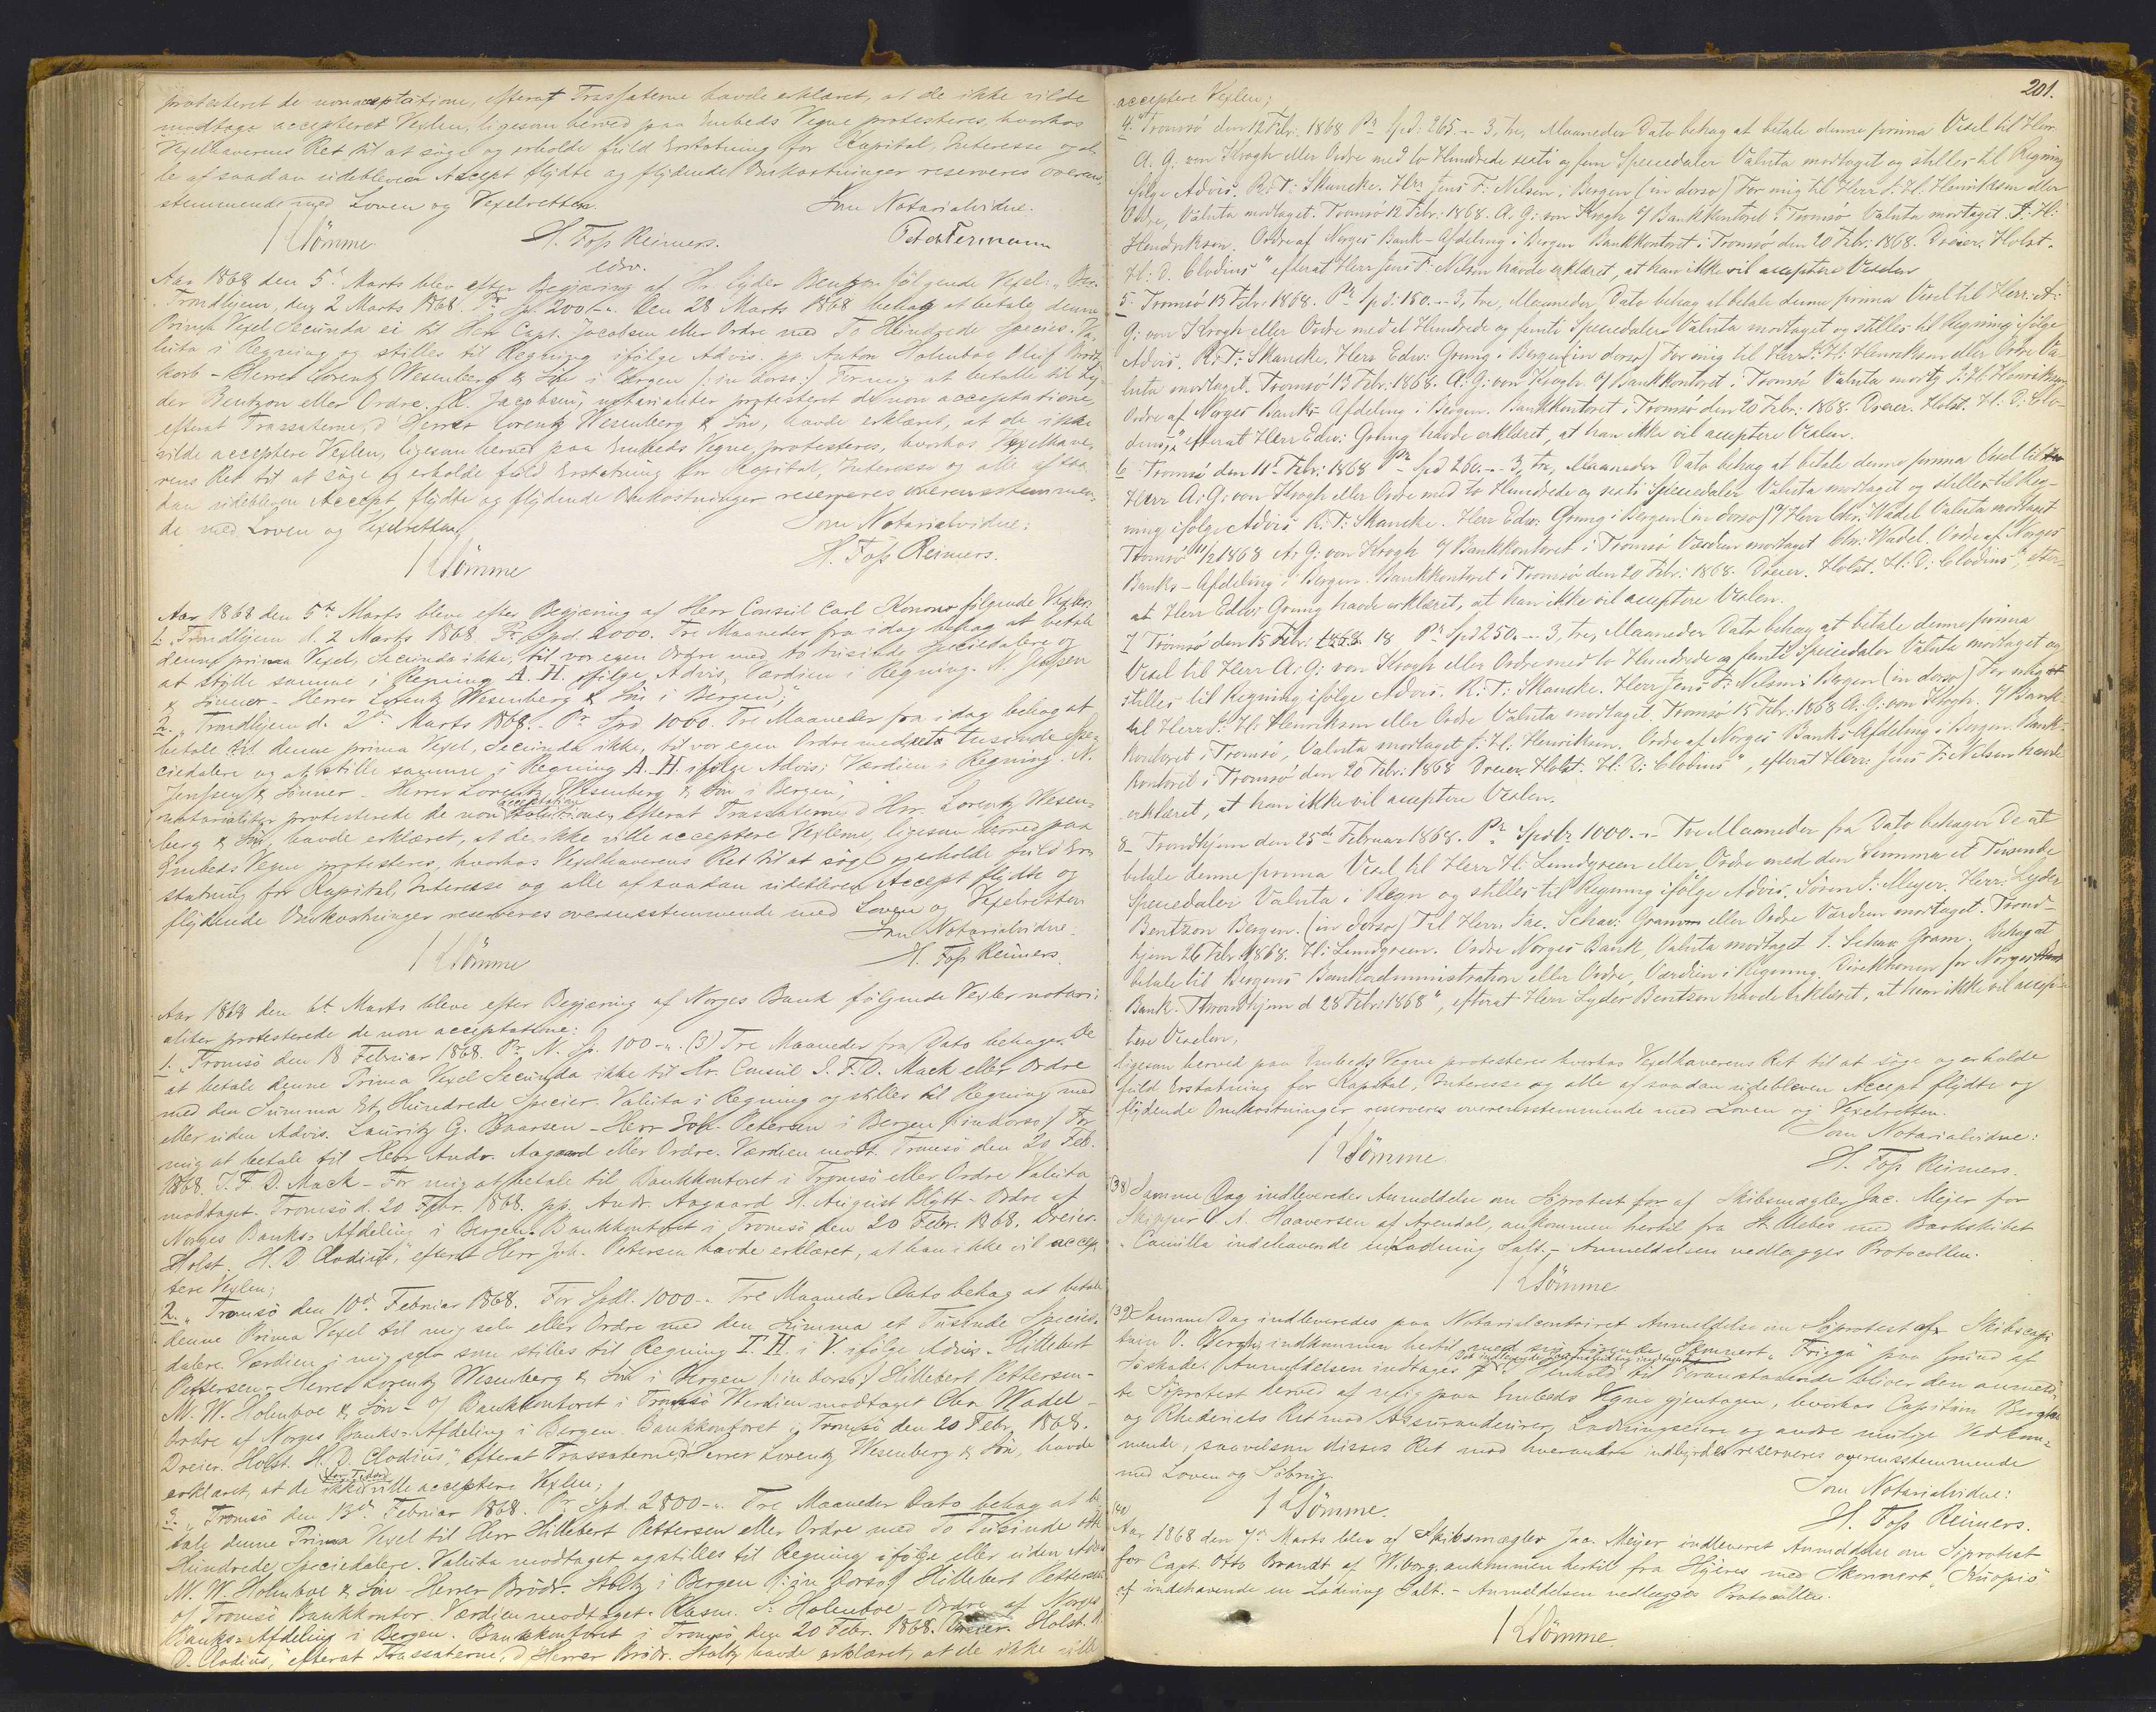 protesteret de non acceptatione, efterat Trassaterne havde erklæret, at de ikke vilde
modtage accepteret Vexlen, ligesom herved paa Embeds Vegne protesteres, hvorhos
Vexelhaverens Ret til at söge og erholde fuld Erstatning for Kapital, Interesse og al-
le af saadan udebleven Accept flydte og flydende Omkostninger reserveres overens,
stemmende med Loven og Vexelretten.
Som Notarialvidne.
KSömme
H. Foss Reimers.
Peter Fermann
edsv.
Aar 1868 den 5te Marts blev efter Begjæring af Hr. Lyder Bentzon følgende Vexel:
Trondhjem, den 2 Marts 1868. Pr. Sp. 200 -„. Den 28 Marts 1868 behag at betale denne
Prima Vexel Secunda ei til Herr Capt. Jacobsen eller Ordre med To Hundrede Species. Va-
luta i Regning og stilles til Regning ifölge Advis. pp Anton Holmboe Oluf
- Herrer Lorentz Wesenberg & Sön i Bergen /: in dorso:/ For mig at betale til Ly-
der Bentzon eller Ordre. R. Jacobsen, notarialiter protesteret de non acceptatione,
efterat Trassaterne, d'Herrer Lorentz Wesenberg & Sön, havde erklæret, at de ikke
vilde acceptere Vexlen, ligesom herved paa Embeds Vegne protesteres, hvorhos Vexelhave-
rens Ret til at söge og erholde fuld Erstatning for Kapital, Interesse og alle af saa-
dan udebleven Accept flydte og flydende Omkostninger reserveres overensstemmen-
de med Loven og Vexelretten.
Som Notarialvidne:
KSömme
H. Foss Reimers.
Aar 1868 den 5te Marts bleve efter Begjæring af Herr Consul Carl Konow følgende Vexler:
1. Trondhjem d. 2 Marts 1868. Pr. Spd. 2000. Tre Maaneder fra idag behag at betale
denne prima Vexel, Secunda ikke, til vor egen Ordre med to tusinde Speciedalere og
at stille samme i Regning A. H. ifölge Advis, Værdien i Regning. N. Jenssen
& Sönner - Herrer Lorentz Wesenberg & Sön i Bergen;"
2. „Trondhjem d. 2den Marts 1868. Pr. Spd 1000. Tre Maaneder fra idag behag at
betale til denne prima Vexel, Secunda ikke, til vor egen Ordre med et tusinde Spe-
ciedalere og at stille samme i Regning A. H. ifölge Advis; Værdien i Regning. N.
Jenssen & Sönner - Herrer Lorentz Wesenberg & Sön i Bergen;"
acceptatione
notarialiter protesterede de non, efterat Trassaterne, d'Hrr. Lorentz Wesen-
berg & Sön, havde erklæret, at de ikke ville acceptere Vexlerne, ligesom herved paa
Embeds Vegne protesteres, hvorhos Vexelhaverens Ret til at söge og erholde fuld Er-
statning for Kapital, Interesse og alle af saadan udebleven Accept flydte og
flydende Omkostninger reserveres overensstemmende med Loven og Vexelretten
Som Notarialvidne:
KSömme
H. Foss Reimers.
Aar 1868 den 6te Marts bleve efter Begjæring af Norges Bank følgende Vexler notari-
aliter protesterede de non acceptatione:
1. „Tromsö den 18 Februar 1868. Pr. N. Sp. 100-„. (3) Tre Maaneder fra Dato behager De
at betale denne Prima Vexel Secunda ikke til Hr. Consul I. F. D. Mack eller Ordre
med den Summa Et Hundrede Species. Valuta i Regning og stilles til Regning med
eller uden Advis. Lauritz G. Baarsen - Herr Joh. Petersen i Bergen /: in dorso:/ For
mig at betale til Herr Andr. Aagaard eller Ordre. Værdien modt. Tromsö den 20 Feb.
1868. I. F. D. Mack - For mig at betale til Bankkontoret i Tromsö eller Ordre Valuta
modtaget. Tromsö d. 20 Febr. 1868. pp. Andr. Aagaard H. August Klütt - Ordre af
Norges Banks Afdeling i Bergen. Bankkontoret i Tromsö den 20 Febr. 1868. Dreier.
Holst. H. D Clodius," efterat Herr Joh. Petersen havde erklæret, at han ikke vil accep-
tere Vexlen;
2. „Tromsö den 10de Februar 1868. For Spdl. 1000-. Tre Maaneder Dato behag at betale
denne Prima Vexel til mig selv eller Ordre med den Summa et Tusinde Specie-
dalere. Værdien i mig selv som stilles til Regning I. H. i V. ifölge Advis - Hillebert
Pettersen - Herrer Lorentz Wesenberg & Sön i Bergen /: in dorso:/ Hillebert Pettersen -
M. W. Holmboe & Sön - o/ Bankkontoret i Tromsö Værdien modtaget Chr. Wadel -
Ordre af Norges Banks Afdeling i Bergen. Bankkontoret i Tromsö den 20 Febr. 1868.
Dreier. Holst. H. D. Clodius," efterat Trassaterne, d'Herrer Lorentz Wesenberg & Sön, havde
for Tiden
erklæret, at de ikke ville acceptere Vexlen;
3. „Tromsö den 13de Februar 1868. Pr. Spd. 2800-„. Tre Maaneder Dato behag at be-
tale denne Prima Vexel til Herr Hillebert Pettersen eller Ordre med To Tusinde otte
Hundrede Speciedalere. Valuta modtaget og stilles til Regning ifölge eller uden Advis
M. W. Holmboe & Sön - Herrer Brödr. Stoltz i Bergen /: in dorso:/ Hillebert Pettersen
o/ Tromsö Bankkontor. Værdien modtaget. Rasm. S. Holmboe - Ordre af Norges
Banks Afdeling i Bergen. Bankkontoret i Tromsö den 20 Febr. 1868. Dreier. Holst. H.
D. Clodius," efterat Trassaterne, d'Herrer Brödr. Stoltz havde erklæret, at de ikke vilde
201.
acceptere Vexlen;
4. Tromsö den 12 Febr: 1868 Pr. Spd: 265. -- 3, tre, Maaneder Dato behag at betale denne prima Vexel til Herr
A. G. von Krogh eller Ordre med to Hundrede sexti og fem Speciedaler Valuta modtaget og stilles til Regning
ifölge Advis. R: T: Skancke. Hrr Jens F: Nilsen i Bergen (in dorso) For mig til Herr J: H: Henriksen eller
Ordre, Valuta modtaget. Tromsö 12 Febr: 1868. A. G: von Krogh o/ Bankkontoret i Tromsö Valuta modtaget. J: H:
Hendriksen. Ordre af Norges Bank-Afdeling i Bergen Bankkontoret i Tromsö den 20 Febr: 1868. Dreier. Holst.
H: D. Clodius" efterat Herr Jens F Nilsen havde erklæret, at han ikke vil acceptere Vexlen
5. Tromsö 13 Febr: 1868. Pr. Spd: 150. -- 3, tre, Maaneder Dato behag at betale denne prima Vexel til Herr: A:
G: von Krogh eller Ordre med et Hundrede og femti Speciedaler Valuta modtaget og stilles til Regning ifölge
Advis. R: T: Skancke. Herr Edw: Grung i Bergen (in dorso) For mig til Herr J: H: Henriksen eller Ordre Va-
luta modtaget. Tromsö 13 Febr: 1868. A: G: von Krogh o/ Bankkontoret i Tromsö Valuta modtg J: H: Henriksen
Ordre af Norges Banks Afdeling i Bergen. Bankkontoret i Tromsö den 20 Febr: 1868. Dreier. Holst. H: D: Clo-
dius," efterat Herr Edw: Grung havde erklæret, at han ikke vil acceptere Vexlen.
6 Tromsö den 11te Febr: 1868 Pr Spd 260. -- 3, tre, Maaneder Dato behag at betale denne prima Vexel til
Herr A: G: von Krogh eller Ordre med to Hundrede og sexti Speciedaler Valuta modtaget og stilles til Reg-
ning ifölge Advis R: T: Skancke. Herr Edw: Grung i Bergen (in dorso) o/ Herr Chr: Wadel Valuta modtaget
Tromsö 11/2 1868 A: G: von Krogh o/ Bankkontoret i Tromsö Værdien modtaget Chr: Wadel. Ordre af Norges
Banks-Afdeling i Bergen. Bankkontoret i Tromsö den 20 Febr: 1868. Dreier. Holst. H: D: Clodius," efter-
at Herr Edw: Grung havde erklæret, at han ikke vil acceptere Vexlen.
7 Tromsö den 15 Febr: 1868. 18 Pr Spd 250. -- 3, tre, Maaneder Dato behag at betale denne prima
Vexel til Herr A: G: von Krogh eller Ordre med to Hundrede og femti Speciedaler Valuta modtaget og
stilles til Regning ifölge Advis. R: T: Skancke. Herr Jens F: Nilsen i Bergen (in dorso) For mig
til Herr J: H: Henriksen eller Ordre Valuta modtaget. Tromsö 15 Febr: 1868 A: G: von Krogh. o/ Bank-
kontoret i Tromsö, Valuta modtaget J: H: Henriksen. Ordre af Norges Banks Afdeling i Bergen. Bank-
kontoret i Tromsö den 20 Febr: 1868 Dreier. Holst. H: D: Clodius", efterat Herr: Jens F: Nilsen havde
erklæret, at han ikke vil acceptere Vexlen.
8 - Trondhjem den 25de Februar 1868. Pr Spdlr 1000. -- Tre Maaneder fra Dato behager De at
betale denne prima Vexel til Herr H: Lundgreen eller Ordre med den Summa et Tusinde
Speciedaler Valuta i Regn og stilles til Regning ifölge Advis. Sören I: Meyer. Herr: Lyder
Bentzon Bergen. (in dorso) Til Herrr Jac. Schav: Gram eller Ordre Værdien modtaget. Trond-
hjem 26 Febr 1868. H: Lundgreen. Ordre Norges Bank, Valuta modtaget I. Schav. Gram. Behag at
betale til Bergens Bankadministration eller Ordre, Værdien i Regning. Direktionen for Norges
Bank. Throndhjem d 28 Febr: 1868", efterat Herr Lyder Bentzon havde erklæret, at han ikke vil accep-
tere Vexelen;
ligesom herved paa Embeds Vegne protesteres hvorhos Vexelhaverens Ret til at söge og erholde
fuld Erstatning for Kapital, Interesse og alle af saadan udebleven Accept flydte og
flydende Omkostninger reserveres overensstemmende med Loven og Vexelretten.
Som Notarialvidne:
KSömme
H. Foss Reimers.
(38) Samme Dag indleveredes Anmeldelse om Söprotest for af Skibsmægler Jac. Mejer for
Skipper A. Haaversen af Arendal, ankommen hertil fra St. Ubes med Barkskibet
Camilla indehavende en Ladning Salt. - Anmeldelsen vedlægges Protocollen.
KSömme
(39) Samme Dag indleveredes paa Notarialcontoiret Anmeldelse om Söprotest af Skibscapi
tain O. Bergh, indkommen hertil med sin förende Skonnert „Frigga" paa Grund af
Söskade. Anmeldelsen indtages I Henhold til Foranstaaende bliver den anmeld-
te Söprotest herved af mig paa Embeds Vegne gjentagen, hvorhos Capitain Berghs
og Rhederiets Ret mod Assurandeurer, Ladningseiere og andre mulige Vedkom-
mende, saavelsom disses Ret mod hverandre indbyrdes reserveres overensstemmende
med Loven og Söbrug
Som Notarialvidne:
KSömme.
H. Foss Reimers.
(40)
Aar 1868 den 7de Marts blev af Skibsmægler Jac. Meijer indleveret Anmeldelse om Söprotest
for Capt. Otto Brandt af Wiborg, ankommen hertil fra Hyères med Skonnert „Kuopio"
af indehavende en Ladning Salt. - Anmeldelsen vedlægges Protocollen.
KSömme.